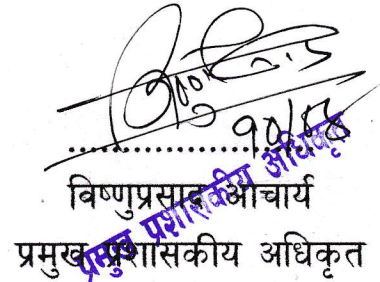 विष्णुप्रसाद आचार्य
प्रमुख प्रशासकीय अधिकृत
प्रमुख प्रशासकीय अधिकृत